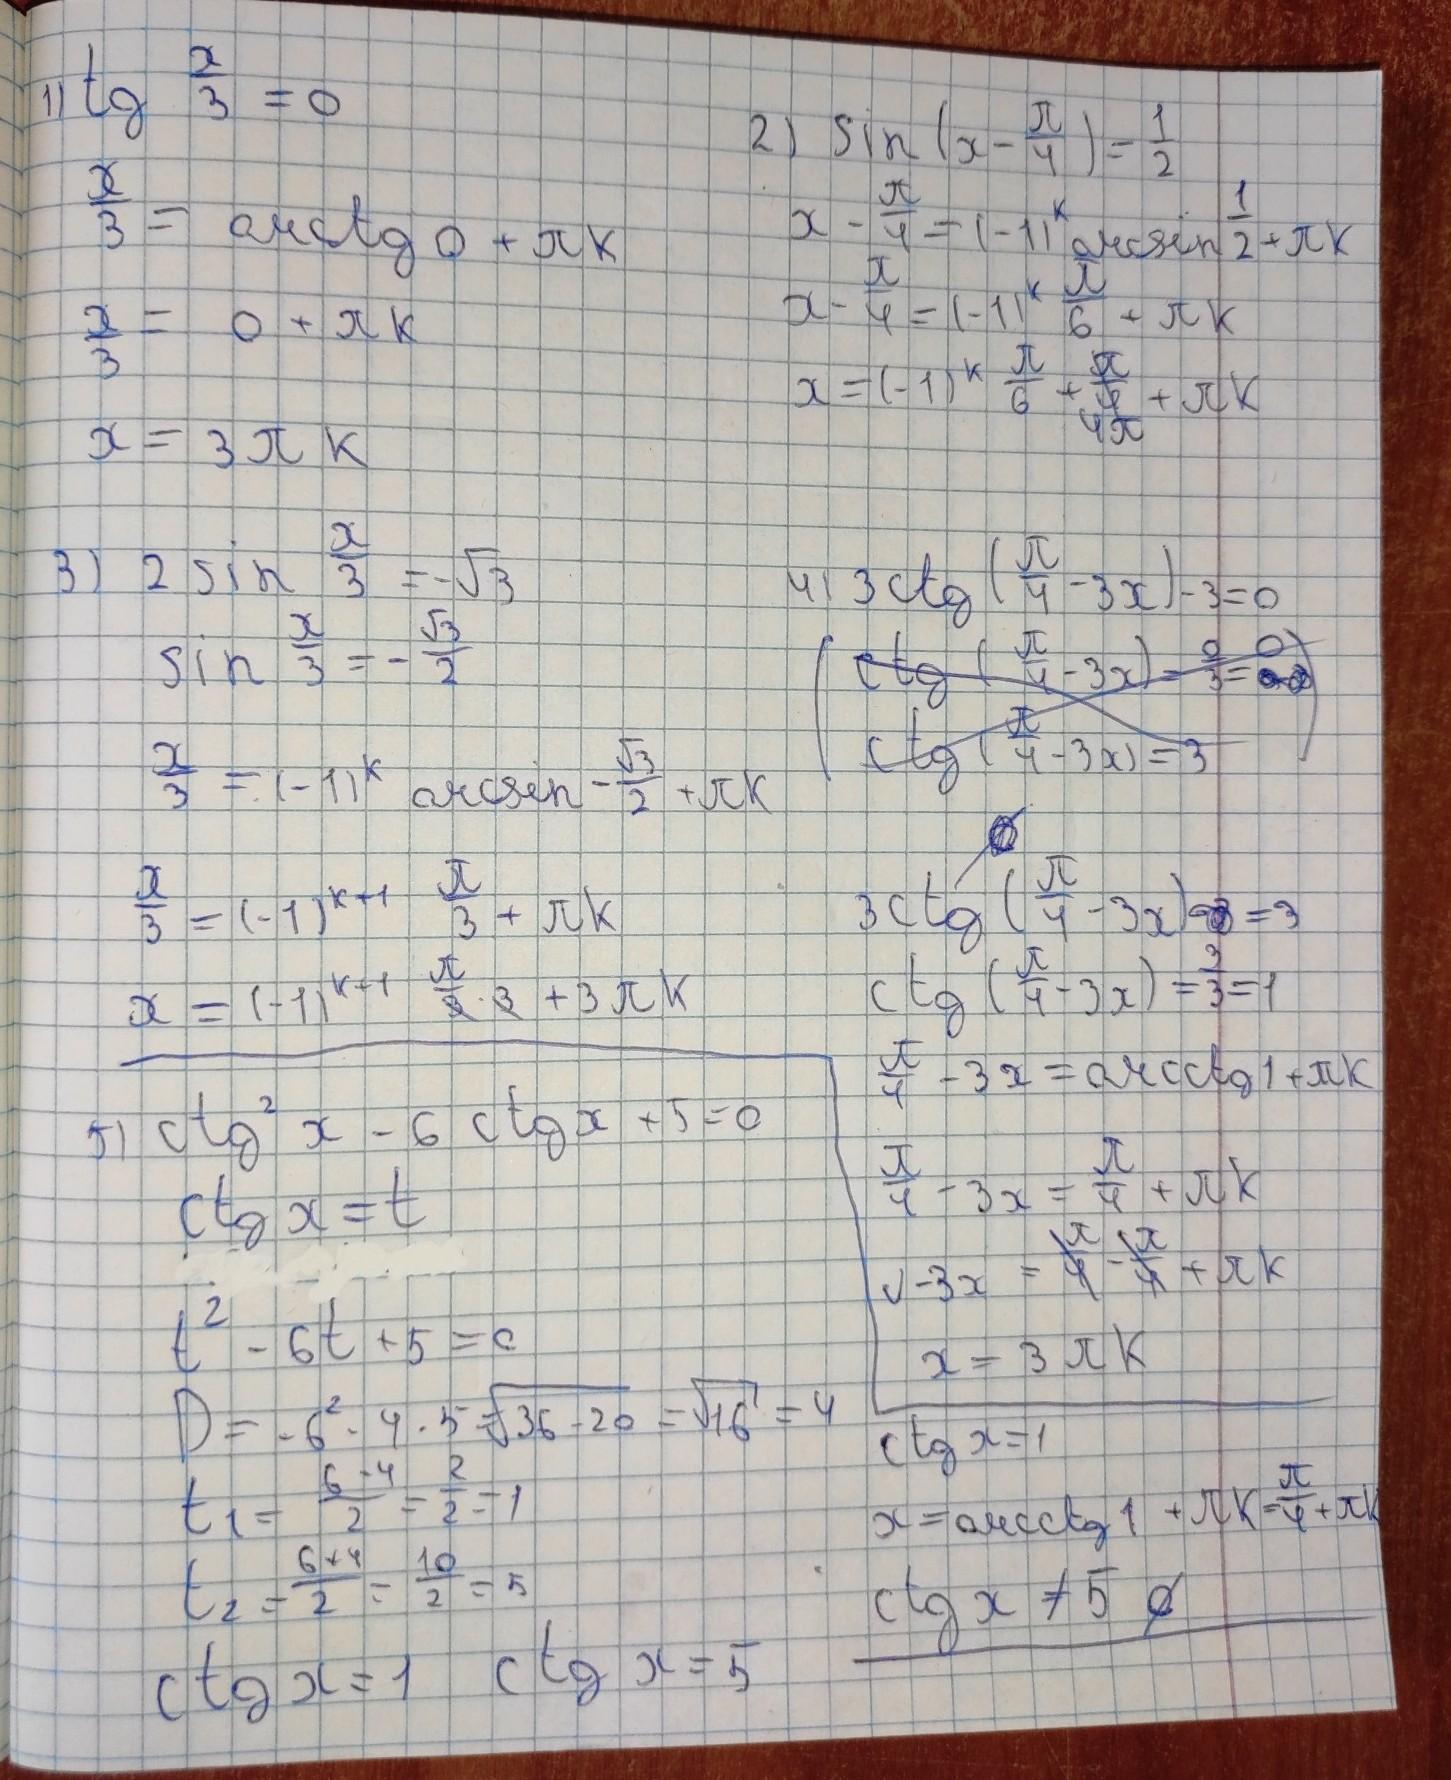 1) tg x/3 = 0
x/3 = arctg 0 + πk
x/3 = 0 + πk
x = 3πk
2) sin(x - π/4) = 1/2
x - π/4 = (-1)^k arcsin 1/2 + πk
x - π/4 = (-1)^k π/6 + πk
x = (-1)^k π/6 + π/4 + πk
4π
3) 2 sin x/3 = -√3
sin x/3 = -√3/2
x/3 = (-1)^k arcsin -√3/2 + πk
x/3 = (-1)^(k+1) π/3 + πk
x = (-1)^(k+1) π/3 · 3 + 3πk
4) 3ctg(π/4 - 3x) - 3 = 0
(ctg(π/4 - 3x) = 0/3 = 0
ctg(π/4 - 3x) = 3)
3ctg(π/4 - 3x) = 3
ctg(π/4 - 3x) = 3/3 = 1
π/4 - 3x = arcctg 1 + πk
π/4 - 3x = π/4 + πk
-3x = π/4 - π/4 + πk
x = 3πk
5) ctg² x - 6 ctg x + 5 = 0
ctg x = t
t² - 6t + 5 = 0
D = -6² - 4 · 5 = √36 - 20 = √16 = 4
t₁ = (6-4)/2 = 2/2 = 1
t₂ = (6+4)/2 = 10/2 = 5
ctg x = 1 ctg x = 5
ctg x = 1
x = arcctg 1 + πk = π/4 + πk
ctg x ≠ 5 ∅